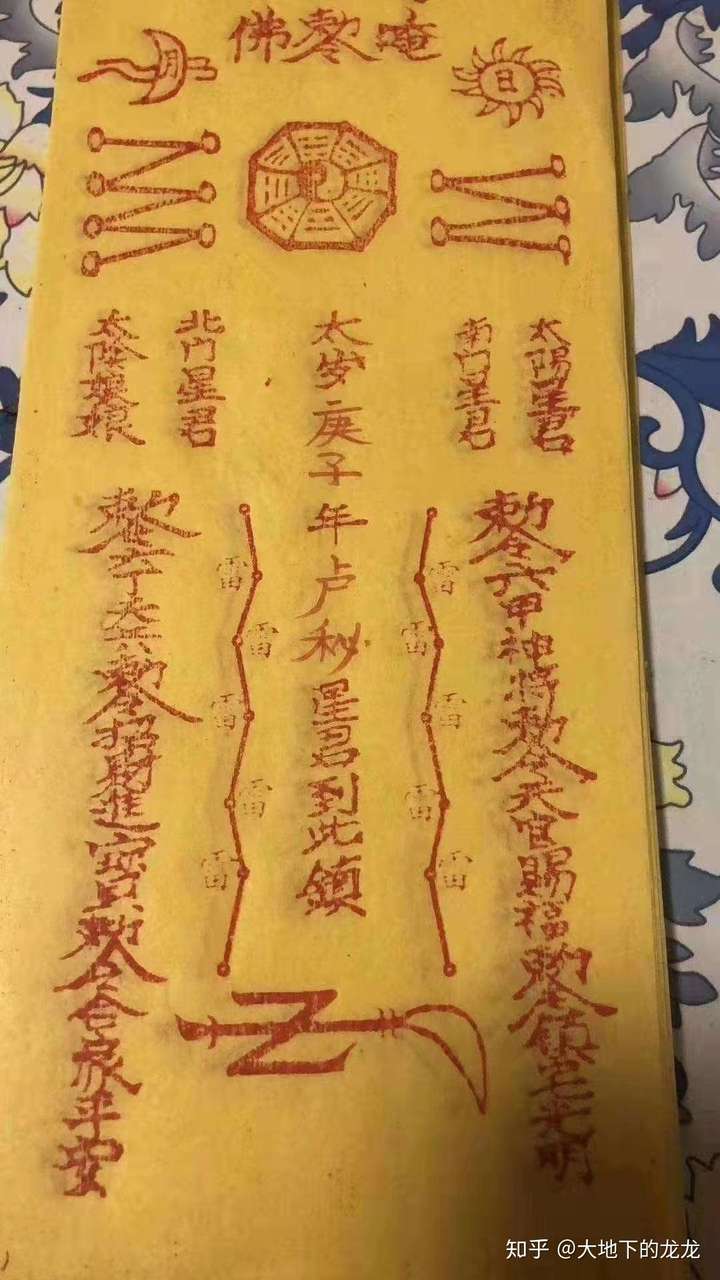 唵勅令佛
日
月
太陽星君
南斗星君
太岁庚子年卢秘星君到此鎮
北斗星君
太陰娘娘
勅令六甲神将勅令天官賜福勅令鎮宅光明
雷
雷
雷
雷
雷
雷
雷
雷
雷
雷
勅令六丁天兵勅令招財進寶勅令合家平安
知乎 @大地下的龙龙